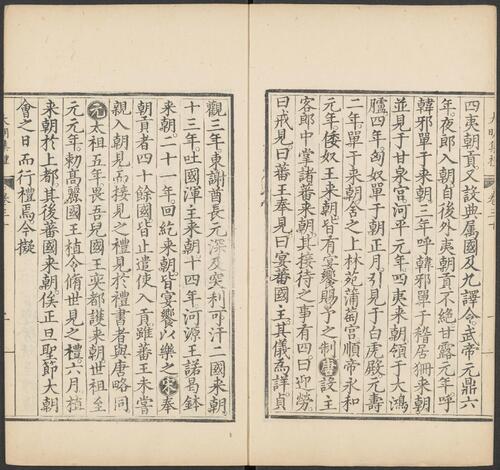 四夷朝貢又設典屬國及九譯令武帝元鼎六
年夜郎入朝自後外夷朝貢不絕甘露元年呼
韓邪單于來朝三年呼韓邪單于稽居狦來朝
並見于甘泉宮河平元年四夷來朝領于大鴻
臚四年匈奴單于朝正月引見于白虎殿元壽
二年單于來朝舍之上林苑蒲萄宮順帝永和
元年倭奴王來朝皆有宴饗賜予之制唐設主
客郎中掌諸蕃來朝其接待之事有四曰迎勞
曰戒見曰蕃王奉見曰宴蕃國主其儀為詳貞
觀三年東謝酋長元深及突利可汗二國來朝
十三年吐國渾主來朝十四年河源王諾曷鉢
來朝二十一年回紇來朝皆宴饗以樂之宋奉
朝貢者四十餘國皆止遣使入貢雖蕃王未嘗
親入朝見而接見之禮見於禮書者與唐略同
元太祖五年畏吾兒國王奕都護來朝世祖至
元元年勑高麗國王植令脩世見之禮六月植
來朝於上都其後蕃國來朝俟正旦聖節大朝
會之日而行禮焉今擬